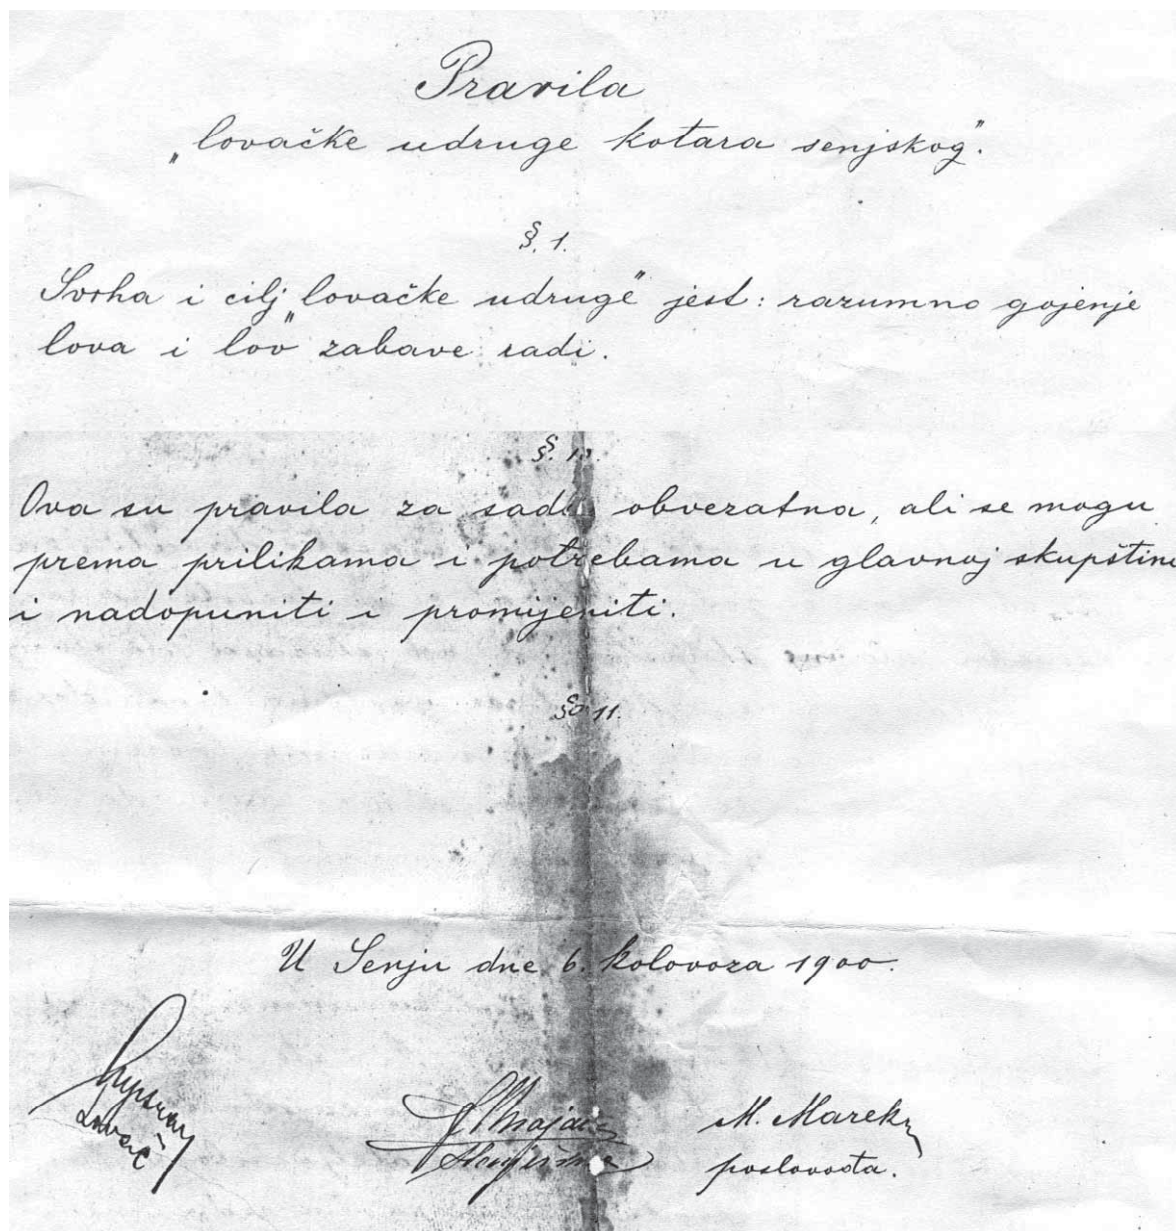 Pravila
„lovačke udruge kotara senjskog".
§. 1.
Svrha i cilj „lovačke udruge" jest: razumno gojenje
lova i lov zabave radi.
§. 1
Ova su pravila za sada obvezatna, ali se mogu
prema prilikama i potrebama u glavnoj skupštini
i nadopuniti i promijeniti.
§ 11.
U Senju dne 6. kolovoza 1900.
M. Marek
poslovođa.